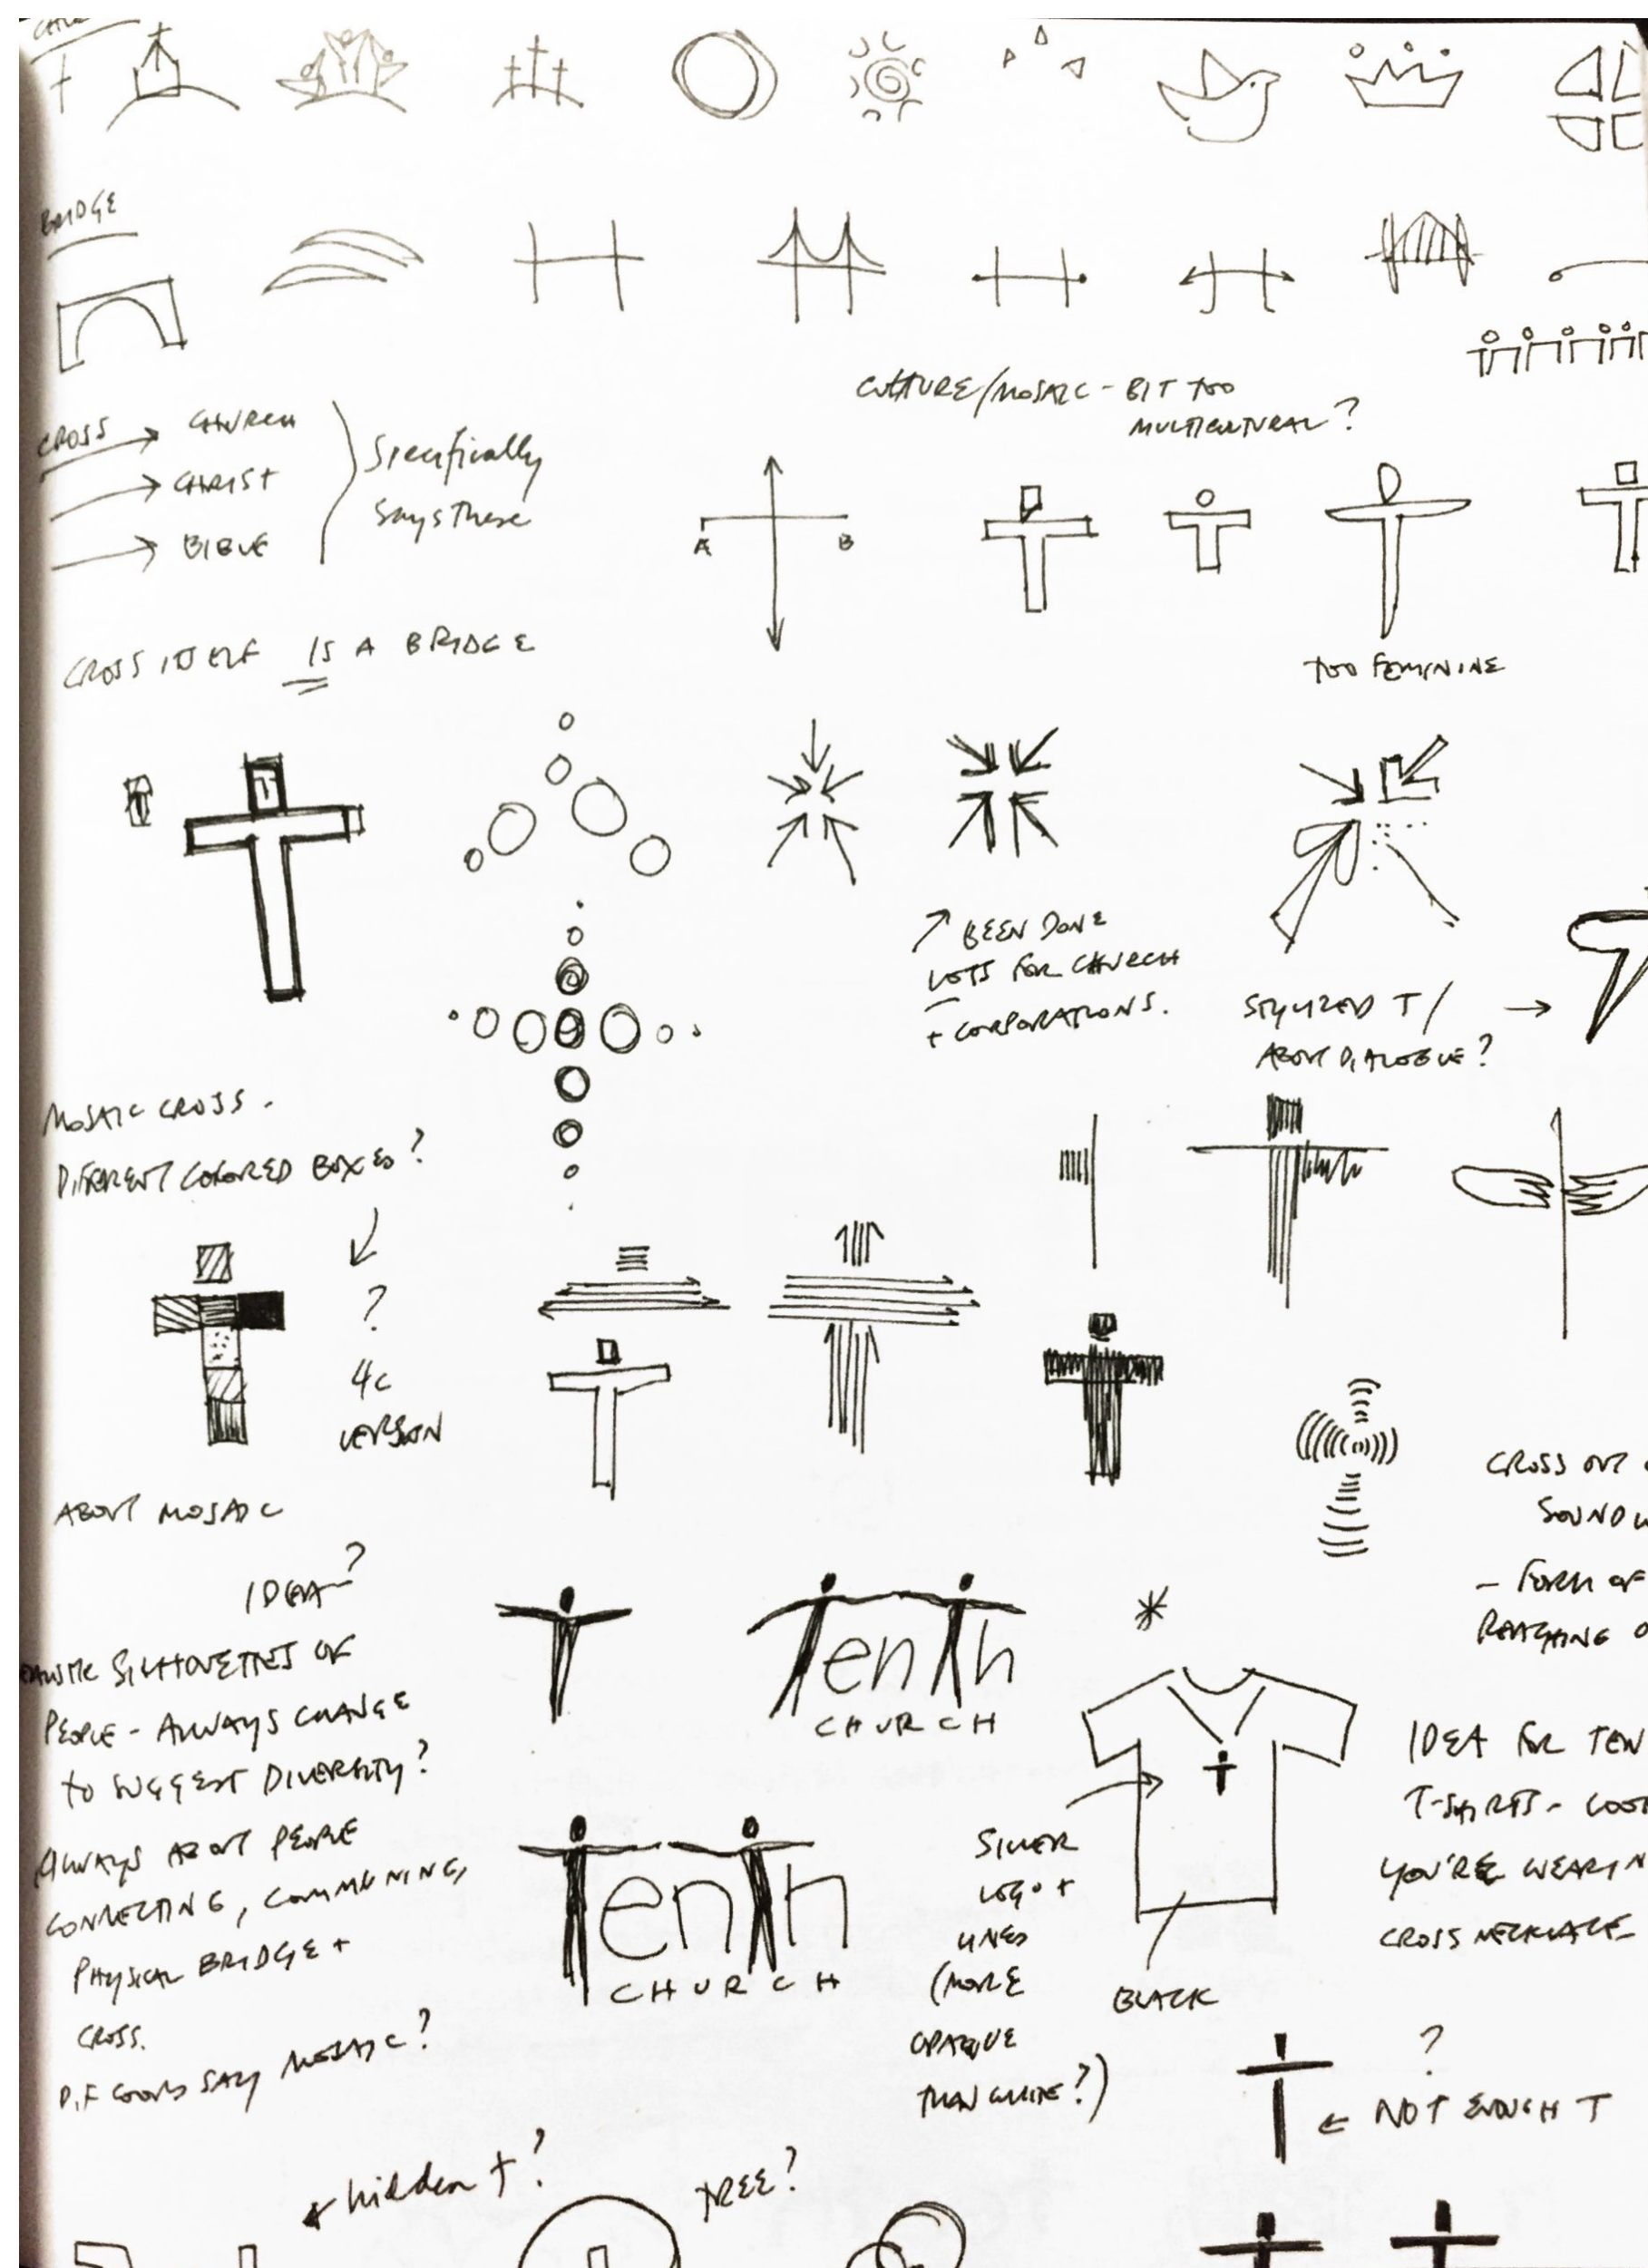 BRIDGE
CULTURE/MOSAIC - BIT TOO
MULTICULTURAL?
CROSS → CHURCH
→ CHRIST
→ BIBLE
Specifically
says these
A B
CROSS ITSELF IS A BRIDGE
TOO FEMININE
↗ BEEN DONE
LOTS FOR CHURCH
+ CORPORATIONS.
STYLIZED T/ →
ABOUT DIALOGUE?
MOSAIC CROSS -
DIFFERENT COLORED BOXES?
?
4C
VERSION
CROSS OUT
SOUND
- FORM OF
REACHING
ABOUT MOSAIC
IDEA?
SILHOUETTES OF
PEOPLE - ALWAYS CHANGE
TO SUGGEST DIVERSITY?
ALWAYS ABOUT PEOPLE
CONNECTING, COMMUNING,
PHYSICAL BRIDGE +
CROSS.
SAY MOSAIC?
TenTh
CHURCH
TenTh
CHURCH
*
SILVER
LOGO +
LINES
(MORE
OPAQUE
THAN WHITE?)
BLACK
IDEA FOR TEN
T-SHIRTS - LOOK
YOU'RE WEARIN
CROSS NECKLACE
?
← NOT ENOUGH T
hidden t?
TREE?